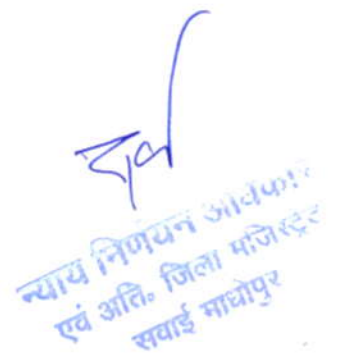 न्याय निर्णयन अधिकारी
एवं अति॰ जिला मजिस्ट्रेट
सवाई माधोपुर